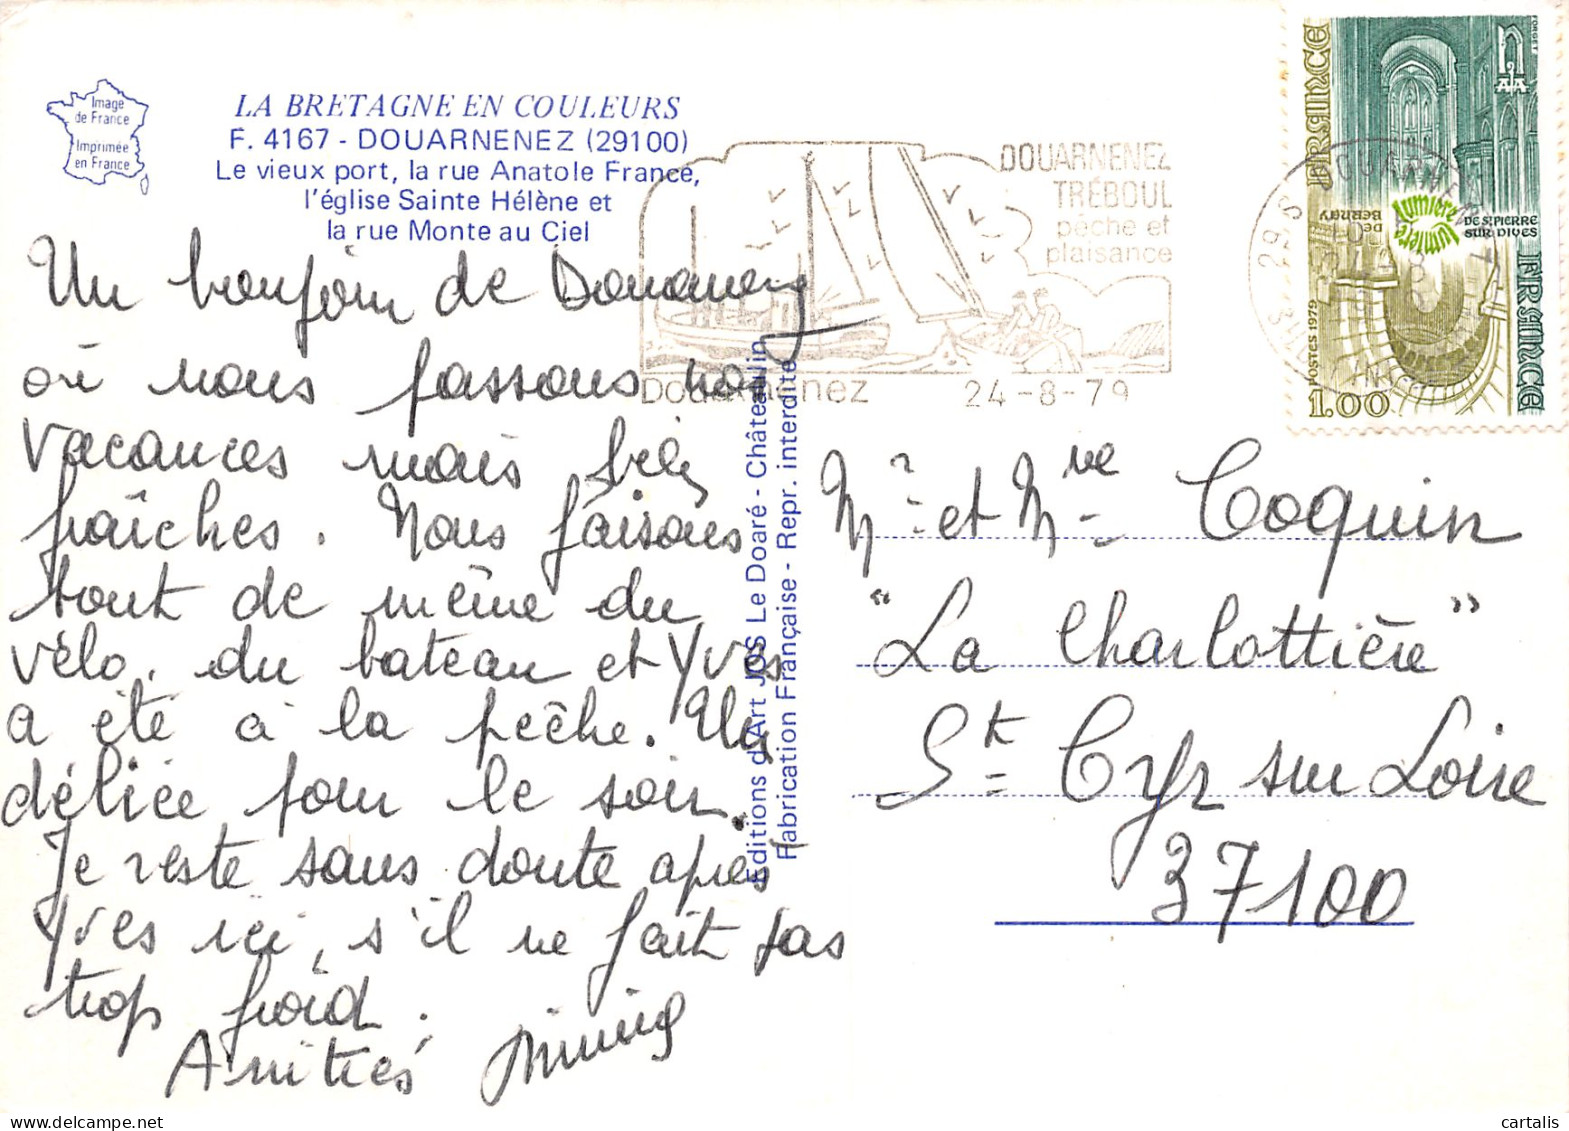 Image
de France
Imprimée
en France
LA BRETAGNE EN COULEURS
F. 4167 - DOUARNENEZ (29100)
Le vieux port, la rue Anatole France,
l'église Sainte Hélène et
la rue Monte au Ciel
Un bonjour de Douarnenez
où nous passons nos
vacances mais bien
fraîches. Nous faisons
tout de même du
vélo, du bateau et Yves
a été à la pêche. Un
délice pour le soir.
Je reste sans doute après
Yves ici, s'il ne fait pas
trop froid.
Amitiés
Editions d'Art JOS Le Doaré - Châteaulin
Fabrication Française - Repr. interdite
DOUARNENEZ
TRÉBOUL
pêche et
plaisance
Douarnenez 24-8-79
29 S DOUARNENEZ
FRANCE
FORGET
lumière
DE ST PIERRE
SUR DIVES
lumière
DE
BERNAY
FRANCE
POSTES 1979
1.00
Mr et Mme Coquin
"La Charlottière"
St Cyr sur Loire
37100
cartalis